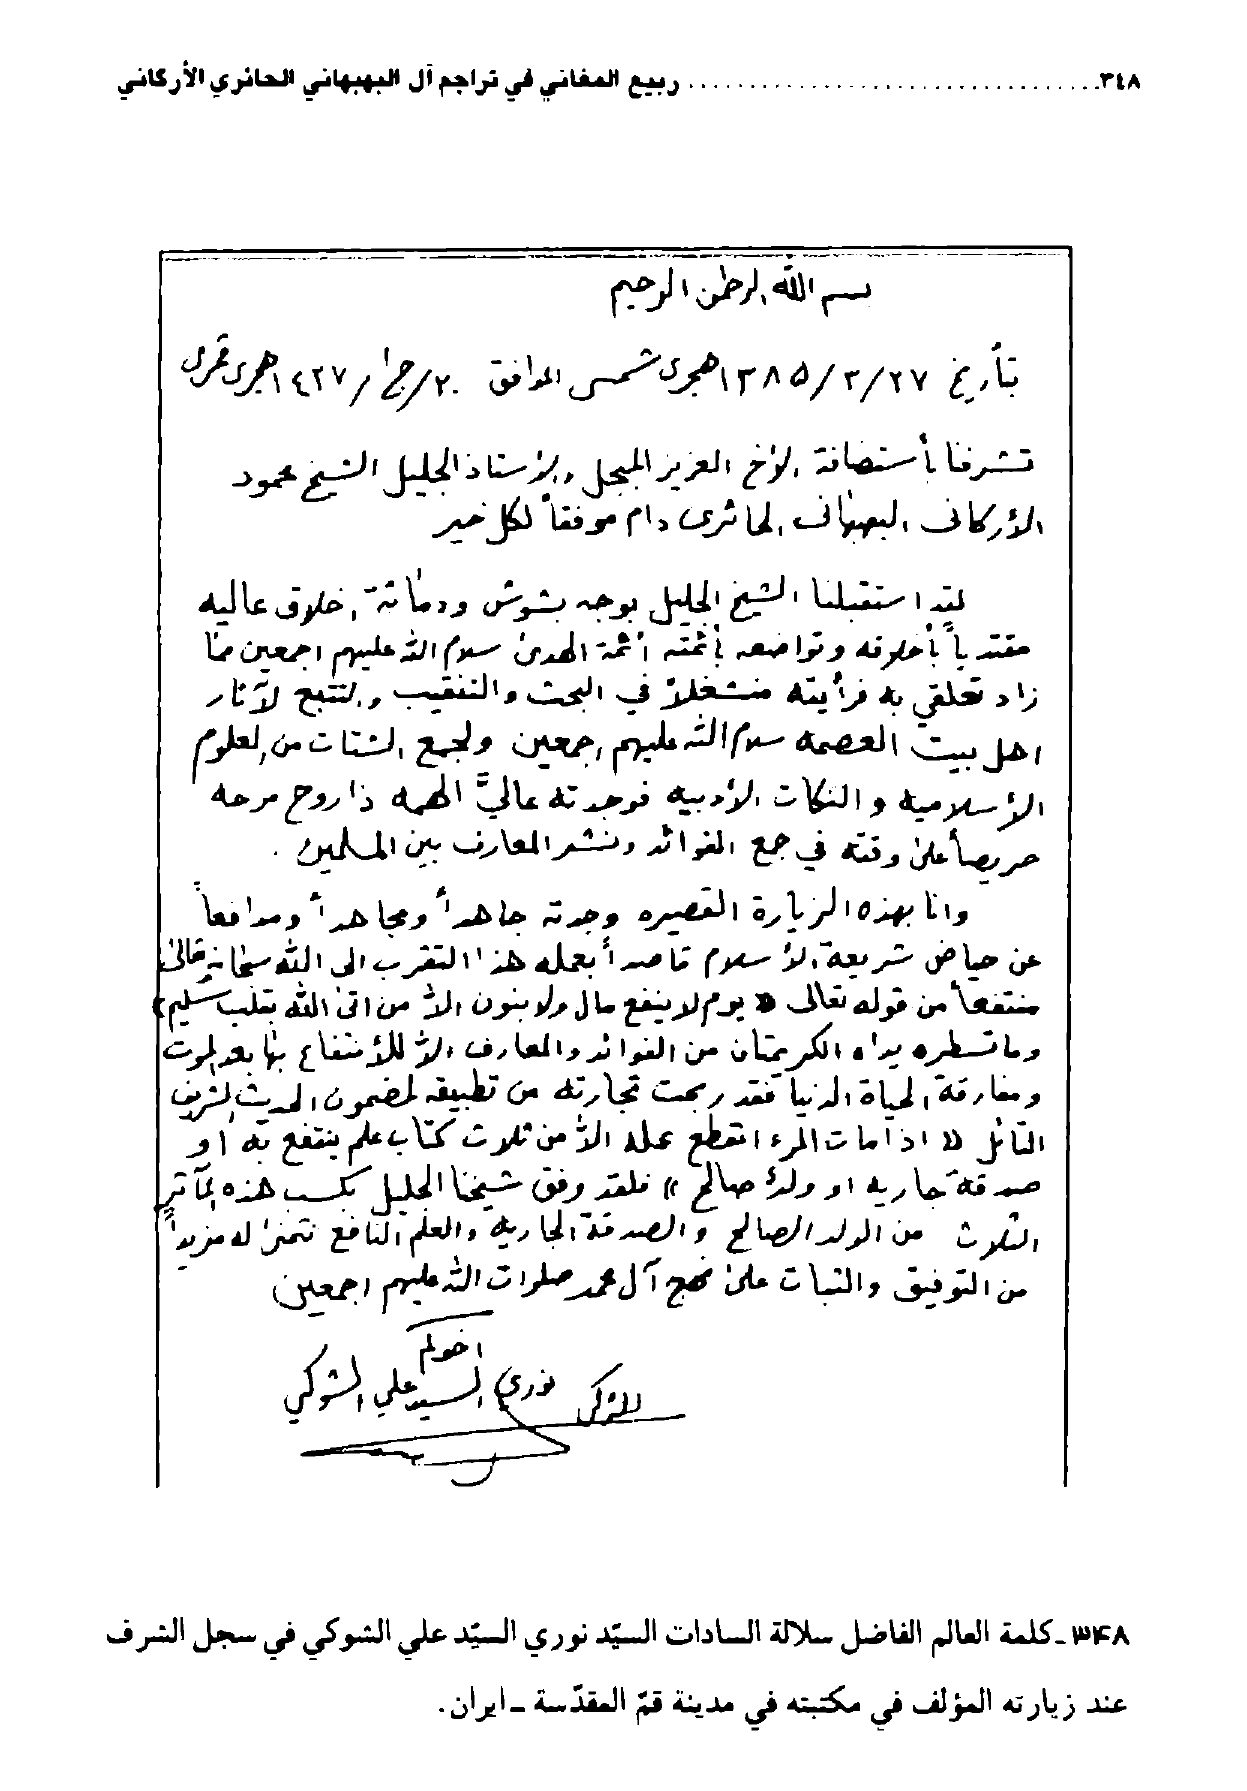 ٣٤٨ ........ ربيع المغاني في تراجم آل البهبهاني الحائري الأركاني
بسم الله الرحمن الرحيم
بتأريخ ٢٧/٣/١٣٨٥ هجرى شمسى الموافق ٢٠/ج١/١٤٢٧ هجرى قمرى
تشرفنا بأستضافة الأخ العزيز المبجل والأستاذ الجليل الشيخ محمود
الأركانى البهبهانى الحائرى دام موفقاً لكل خير
لقد استقبلنا الشيخ الجليل بوجه بشوش ودماثة اخلاق عاليه
مقتدياً بأخلاقه وتواضعه بأئمته أئمة الهدىٰ سلام الله عليهم اجمعين ممّا
زاد تعلقي به فرأيته منشغلاً في البحث والتنقيب والتتبع لآثار
اهل بيت العصمه سلام الله عليهم اجمعين ولجمع الشتات من العلوم
الأسلاميه والنكات الأدبيه فوجدته عاليَّ الهمه ذا روح مرحه
حريصاً علىٰ وقته في جمع الفوائد ونشر المعارف بين المسلمين .
وانا بهذه الزيارة القصيره وجدته جاهداً ومجاهداً ومدافعاً
عن حياض شريعة الأسلام قاصداً بعمله هذا التقرب الى الله سبحانه وتعالىٰ
منتفعاً من قوله تعالى « يوم لا ينفع مال ولا بنون الاّ من اتىٰ الله بقلب سليم »
وما تسطره يداه الكريمتان من الفوائد والمعارف الاّ للأنتفاع بها بعد الموت
ومفارقة الحياة الدنيا فقد ربحت تجارته من تطبيقه لمضمون الحديث الشريف
القائل « اذا مات المرء انقطع عمله الاّ من ثلاث كتاب علم ينتفع به او
صدقة جاريه او ولدٌ صالح » فلقد وفق شيخنا الجليل بكسب هذه المآثر
الثلاث من الولد الصالح والصدقة الجاريه والعلم النافع نتمنىٰ له مزيداً
من التوفيق والثبات علىٰ نهج آل محمد صلوات الله عليهم اجمعين
اخوكم
نوري السيد علي الشوكي
٣٤٨ـ كلمة العالم الفاضل سلالة السادات السيّد نوري السيّد علي الشوكي في سجل الشرف
عند زيارته المؤلف في مكتبته في مدينة قمّ المقدّسة ـ ايران.